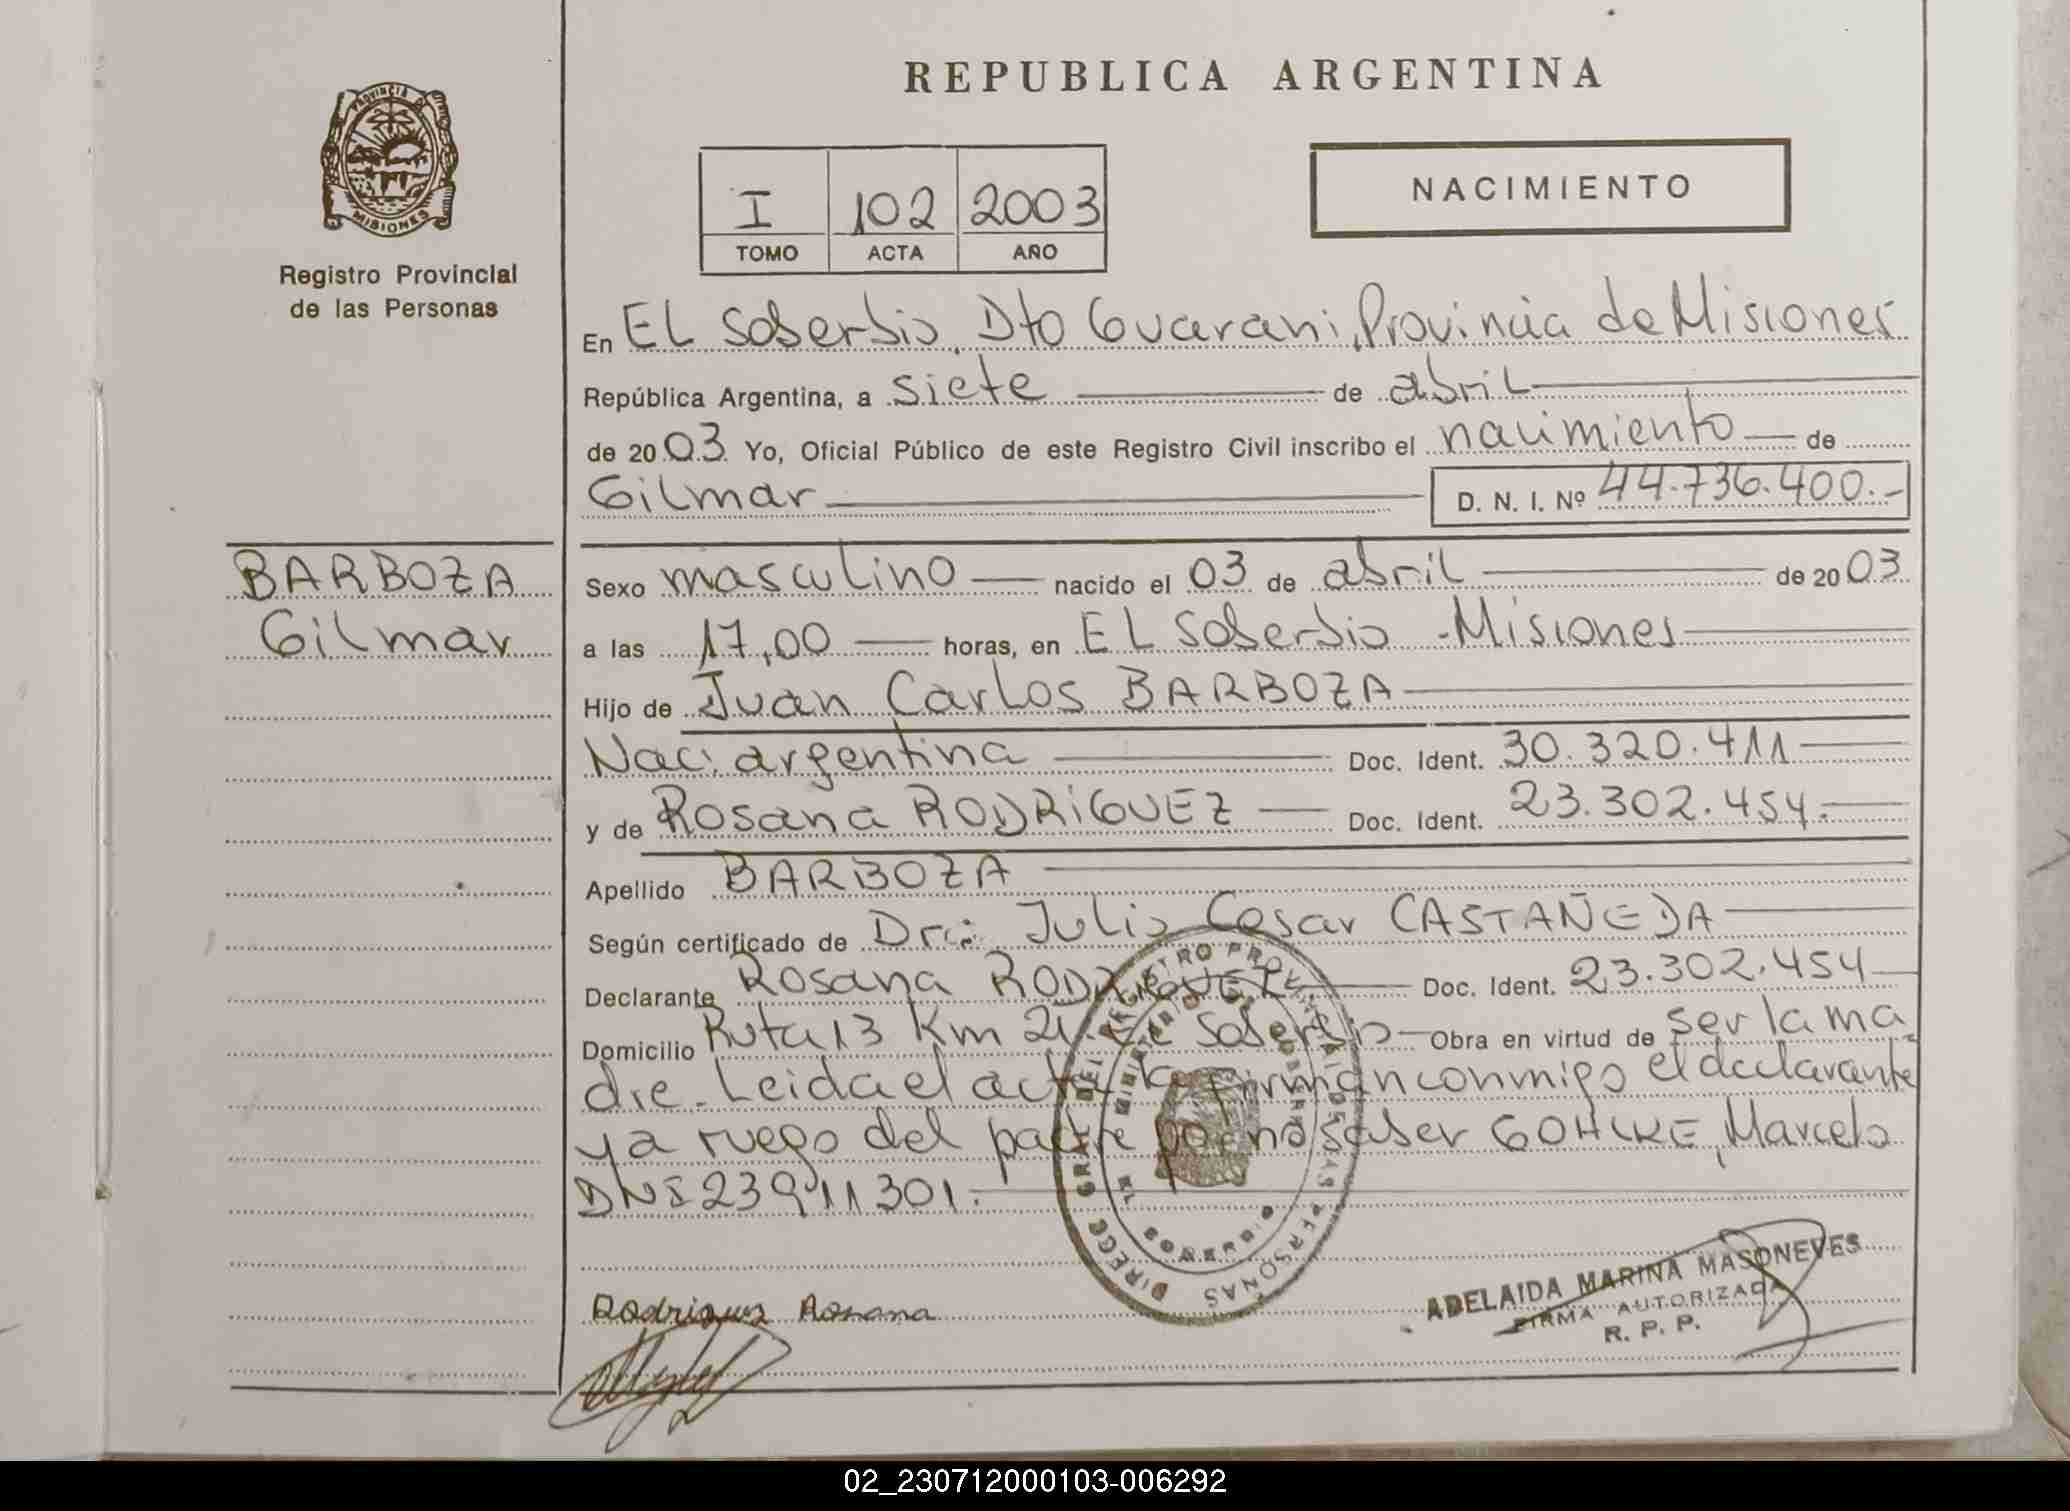 REPUBLICA ARGENTINA
PROVINCIA DE
MISIONES
Registro Provincial
de las Personas
I 102 2003
TOMO ACTA AÑO
NACIMIENTO
En EL Soberbio, Dto Guarani, Provincia de Misiones
República Argentina, a siete de abril
de 2003 Yo, Oficial Público de este Registro Civil inscribo el nacimiento de
Gilmar D. N. I. Nº 44.736.400.-
BARBOZA
Gilmar
Sexo masculino nacido el 03 de abril de 2003
a las 17,00 horas, en EL Soberbio - Misiones
Hijo de Juan Carlos BARBOZA
Nac: argentina Doc. Ident. 30.320.411
y de Rosana RODRIGUEZ Doc. Ident. 23.302.454.
Apellido BARBOZA
Según certificado de Dr.: Julio Cesar CASTAÑEDA
Declarante Rosana RODRIGUEZ Doc. Ident. 23.302.454
Domicilio Ruta 13 Km 21 Soberbio Obra en virtud de ser la ma
dre. Leida el acta la firman conmigo el declarante
y a ruego del padre por no saber GOHLKE, Marcelo
DNI 23911301.
DIRECC GRAL DEL REGISTRO PROVINCIAL DE LAS PERSONAS
MINISTERIO DE GOBIERNO
EL SOBERBIO
Rodriguez Rosana
ADELAIDA MARINA MASONEVES
FIRMA AUTORIZADA
R. P. P.
02_230712000103-006292